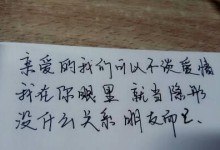 亲爱的我们可以不谈爱情
我在你眼里 就当隐形
没什么关系 朋友而已.